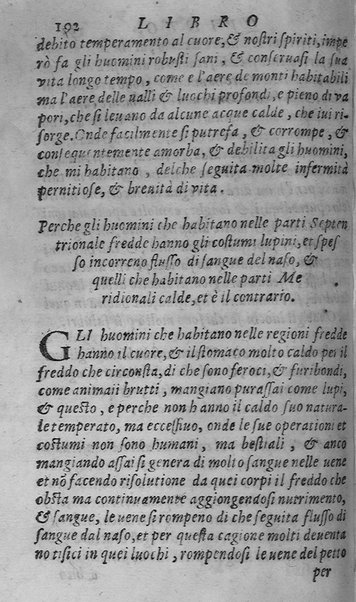 192 LIBRO
debito temperamento al cuore, & nostri spiriti, impe
rò fa gli huomini robusti sani, & conseruasi la sua
vita longo tempo, come e l'aere de monti habitabili
ma l'aere delle ualli & luochi profondi, e pieno di va
pori, che si leuano da alcune acque calde, che iui ri-
sorge. Onde facilmente si putrefa, & corrompe, &
consequentemente amorba, & debilita gli huomini,
che mi habitano, delche seguita molte infermità
pernitiose, & breuità di vita.
Perche gli huomini che habitano nelle parti Septen
trionale fredde hanno gli costumi lupini, et spes
so incorreno flusso di sangue del naso, &
quelli che habitano nelle parti Me
ridionali calde, et è il contrario.
GLI huomini che habitano nelle regioni fredde
hanno il cuore, & il stomaco molto caldo per il
freddo che circonsta, di che sono feroci, & furibondi,
come animali brutti, mangiano purassai come lupi,
& questo, e perche non hanno il caldo suo natura-
le temperato, ma eccessiuo, onde le sue operationi et
costumi non sono humani, ma bestiali, & anco
mangiando assai si genera di molto sangue nelle uene
et nō facendo risolutione da quei corpi il freddo che
obsta ma continuamente aggiongendosi nutrimento,
& sangue, le uene si rompeno di che seguita flusso di
sangue dal naso, et per questa cagione molti deuenta
no tisici in quei luochi, rompendosi le uene del petto
per